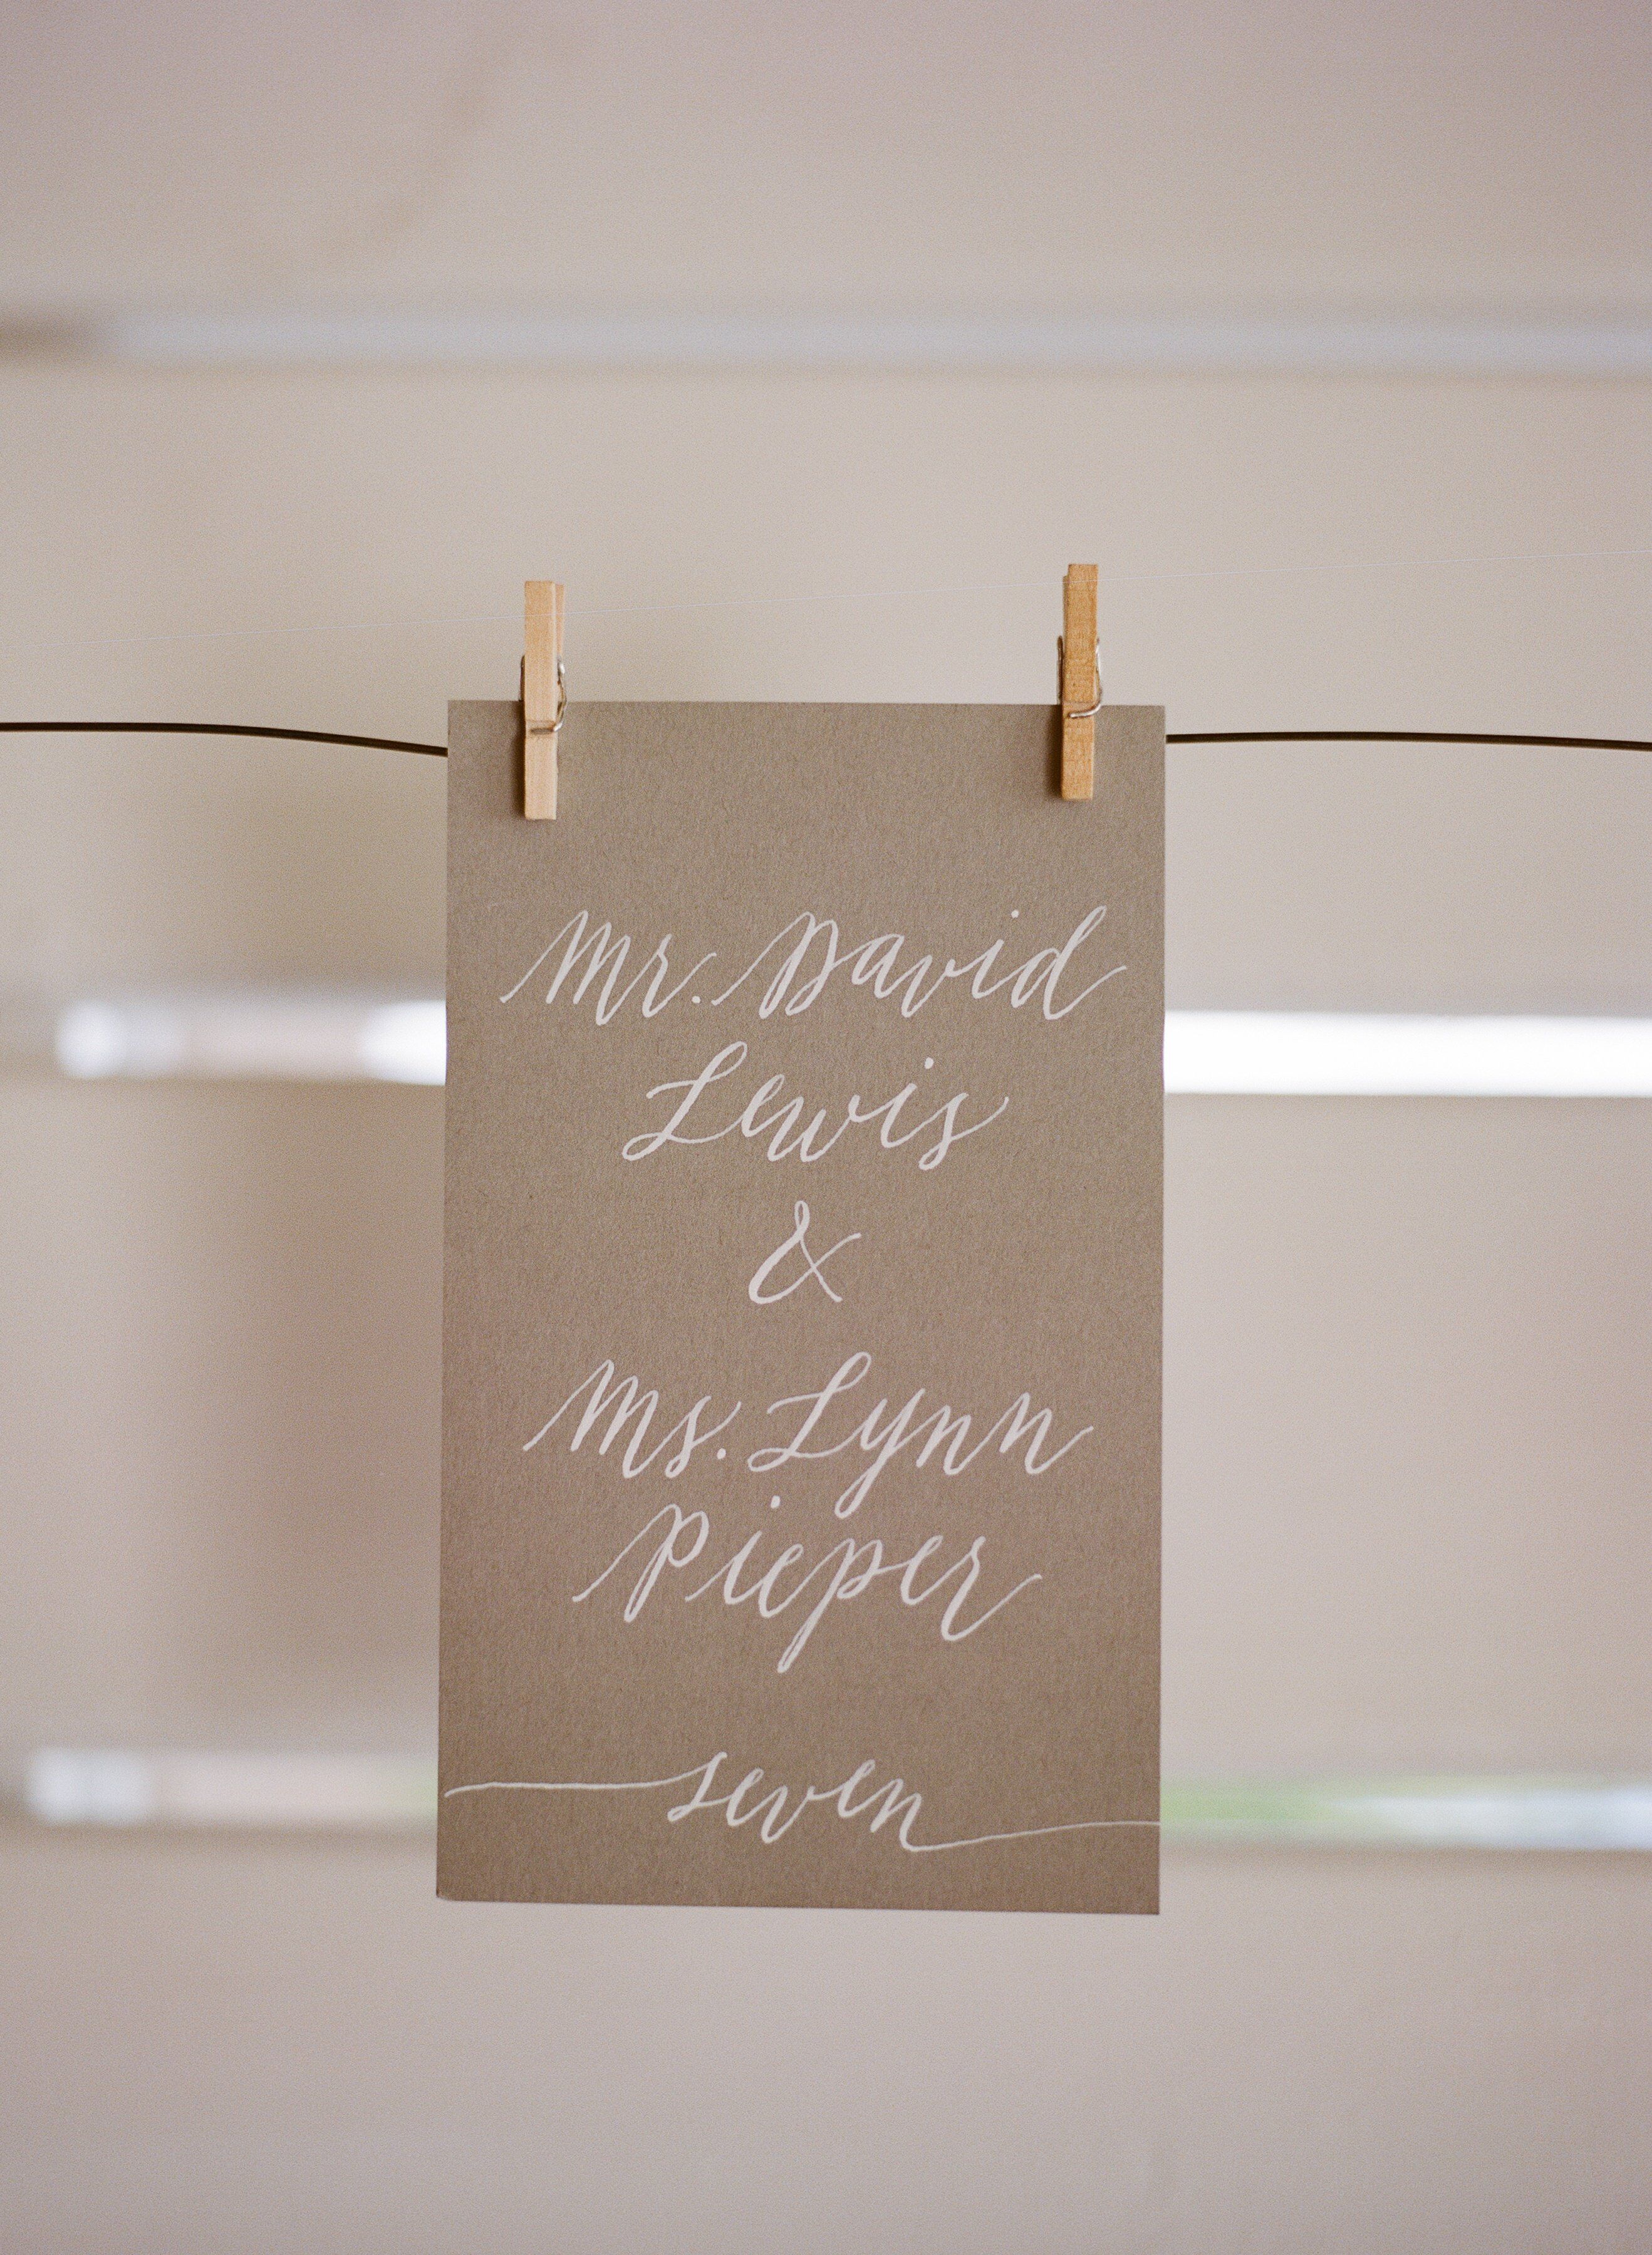 Mr. David
Lewis
&
Ms. Lynn
Pieper
seven